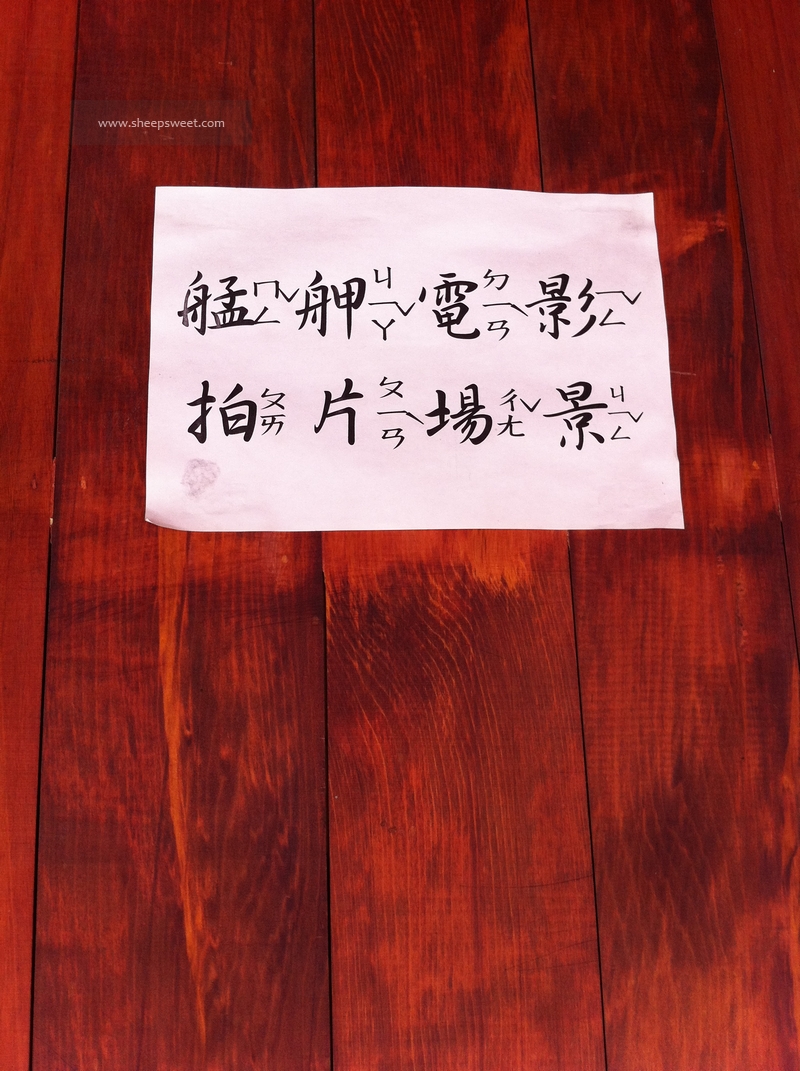 www.sheepsweet.com
艋ㄇㄥˇ舺ㄐㄧㄚˇ電ㄉㄧㄢˋ影ㄧㄥˇ
拍ㄆㄞ片ㄆㄧㄢˋ場ㄔㄤˇ景ㄐㄧㄥˇ